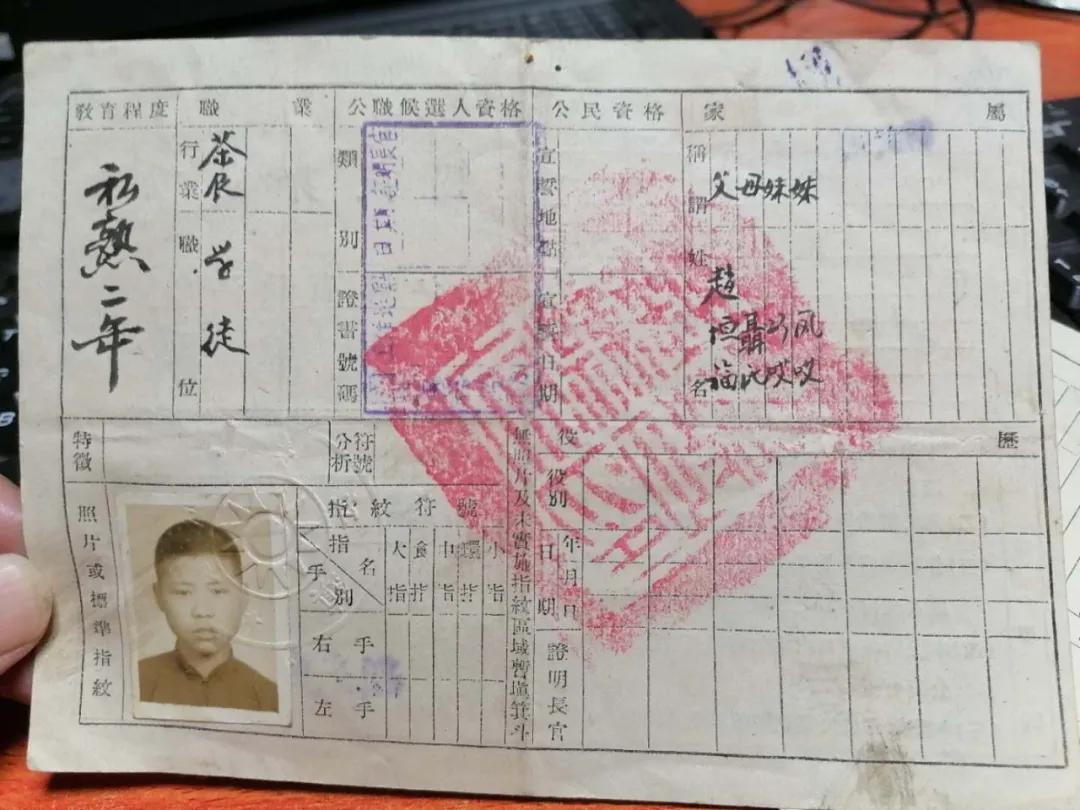 教育程度
私熟二年
職業
行業
茶
職位
学徒
公職候選人資格
類別
證書號碼
公民資格
宣誓地點
宣誓日期
家屬
稱謂
父母妹妹
姓名
趙恒福
聶氏
特徵
符號分析
照片或標準指紋
指紋符號
指名
手別
大指
食指
中指
環指
小指
右手
左手
無照片及未實施指紋區域暫填箕斗
役歷
役別
年月日
日期
證明長官